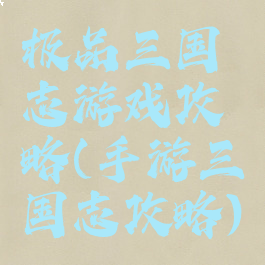 极品三国
志游戏攻
略(手游三
国志攻略)